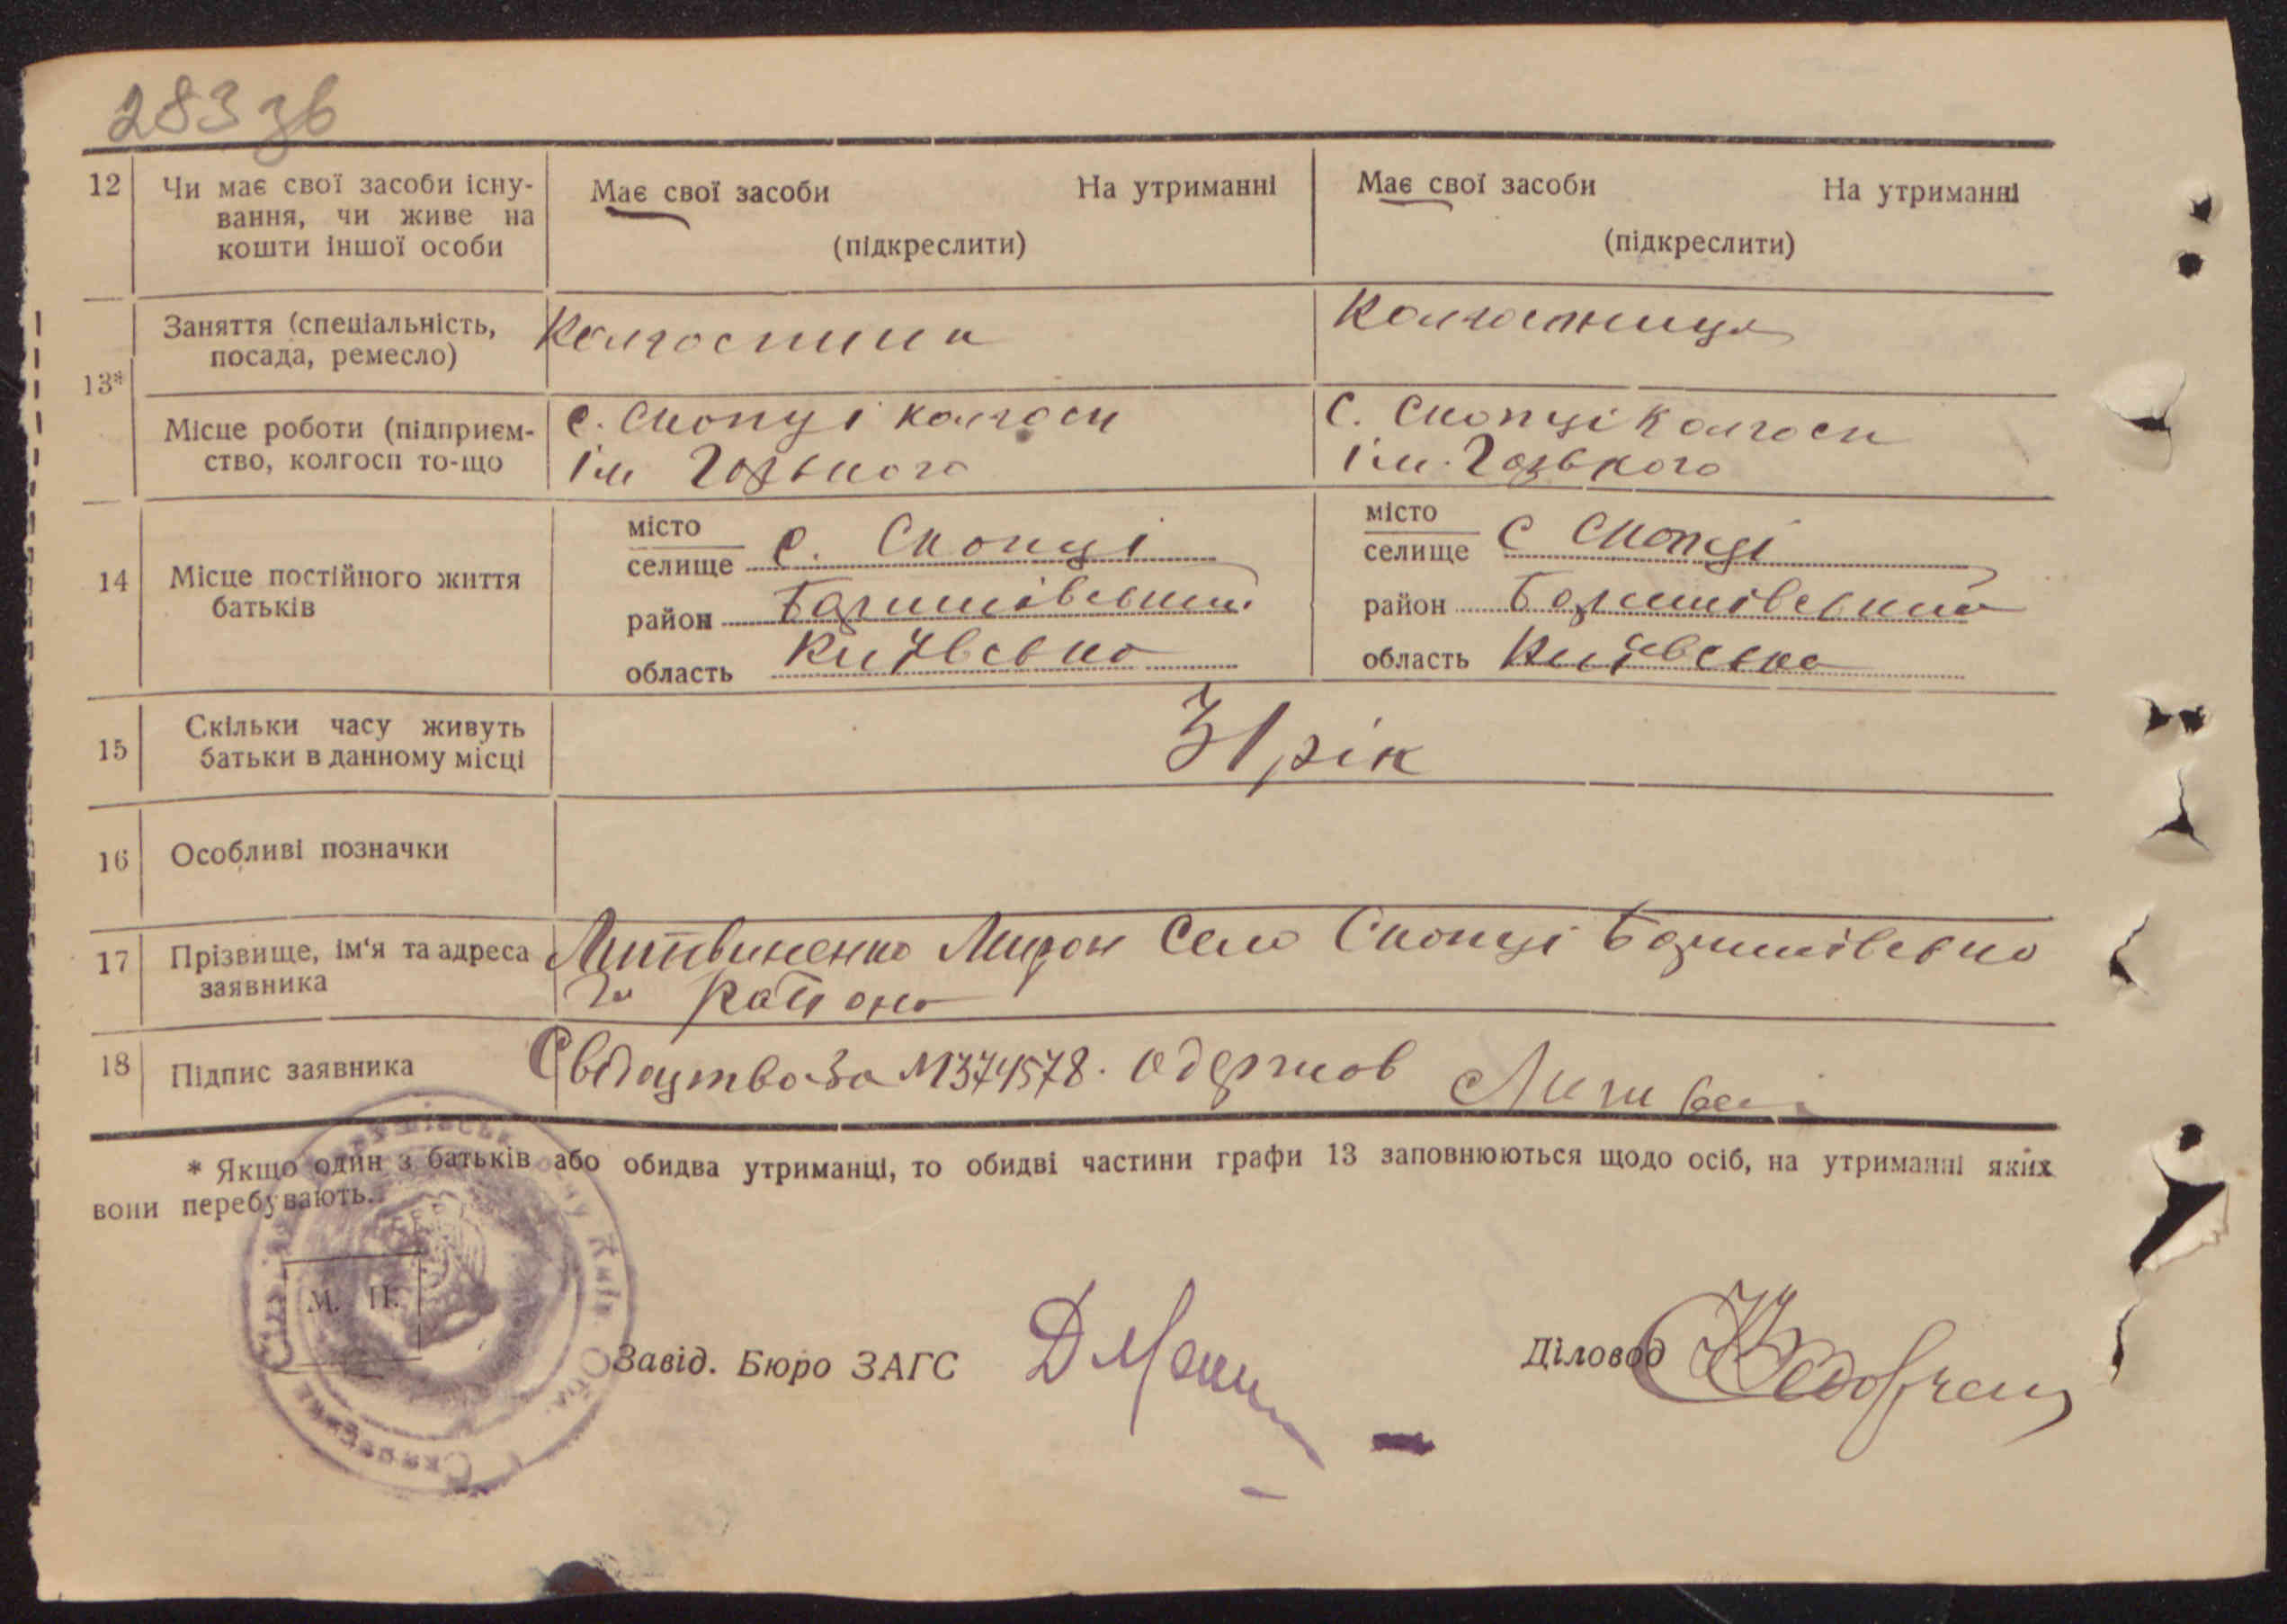 283 зв
12 Чи має свої засоби існу-
вання, чи живе на
кошти іншої особи
Має свої засоби На утриманні
(підкреслити)
Має свої засоби На утриманні
(підкреслити)
13*
Заняття (спеціальність,
посада, ремесло)
Колгоспник
Колгоспниця
Місце роботи (підприєм-
ство, колгосп то-що
с. Скопці колгосп
ім Горького
С. Скопці Колгосп
ім. Горького
14 Місце постійного життя
батьків
місто
селище с. Скопці
район Баришівський
область Київська
місто
селище с Скопці
район Баришівський
область Київська
15 Скільки часу живуть
батьки в данному місці
31 рік
16 Особливі позначки
17 Прізвище, ім'я та адреса
заявника
Литвиненко Мирон Село Скопці Баришівсько
го району
18 Підпис заявника
Свідоцтво за №374578. одержов
* Якщо один з батьків або обидва утриманці, то обидві частини графи 13 заповнюються щодо осіб, на утриманні яких
вони перебувають.
М. П.
Завід. Бюро ЗАГС
Діловод